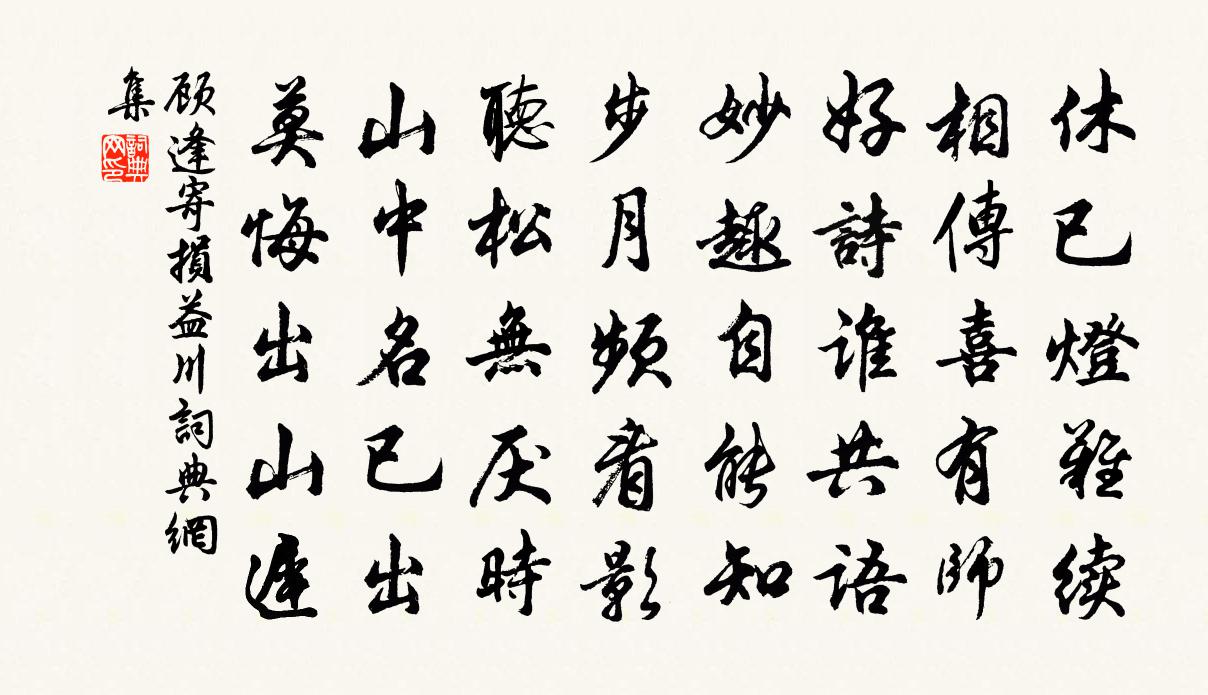 休已燈難续
相傳喜有師
好詩谁共語
妙趣自能知
步月頻看影
聽松無厌時
山中名已出
莫悔出山遲
顾逢寄損益川詞典網
集
詞典
网印